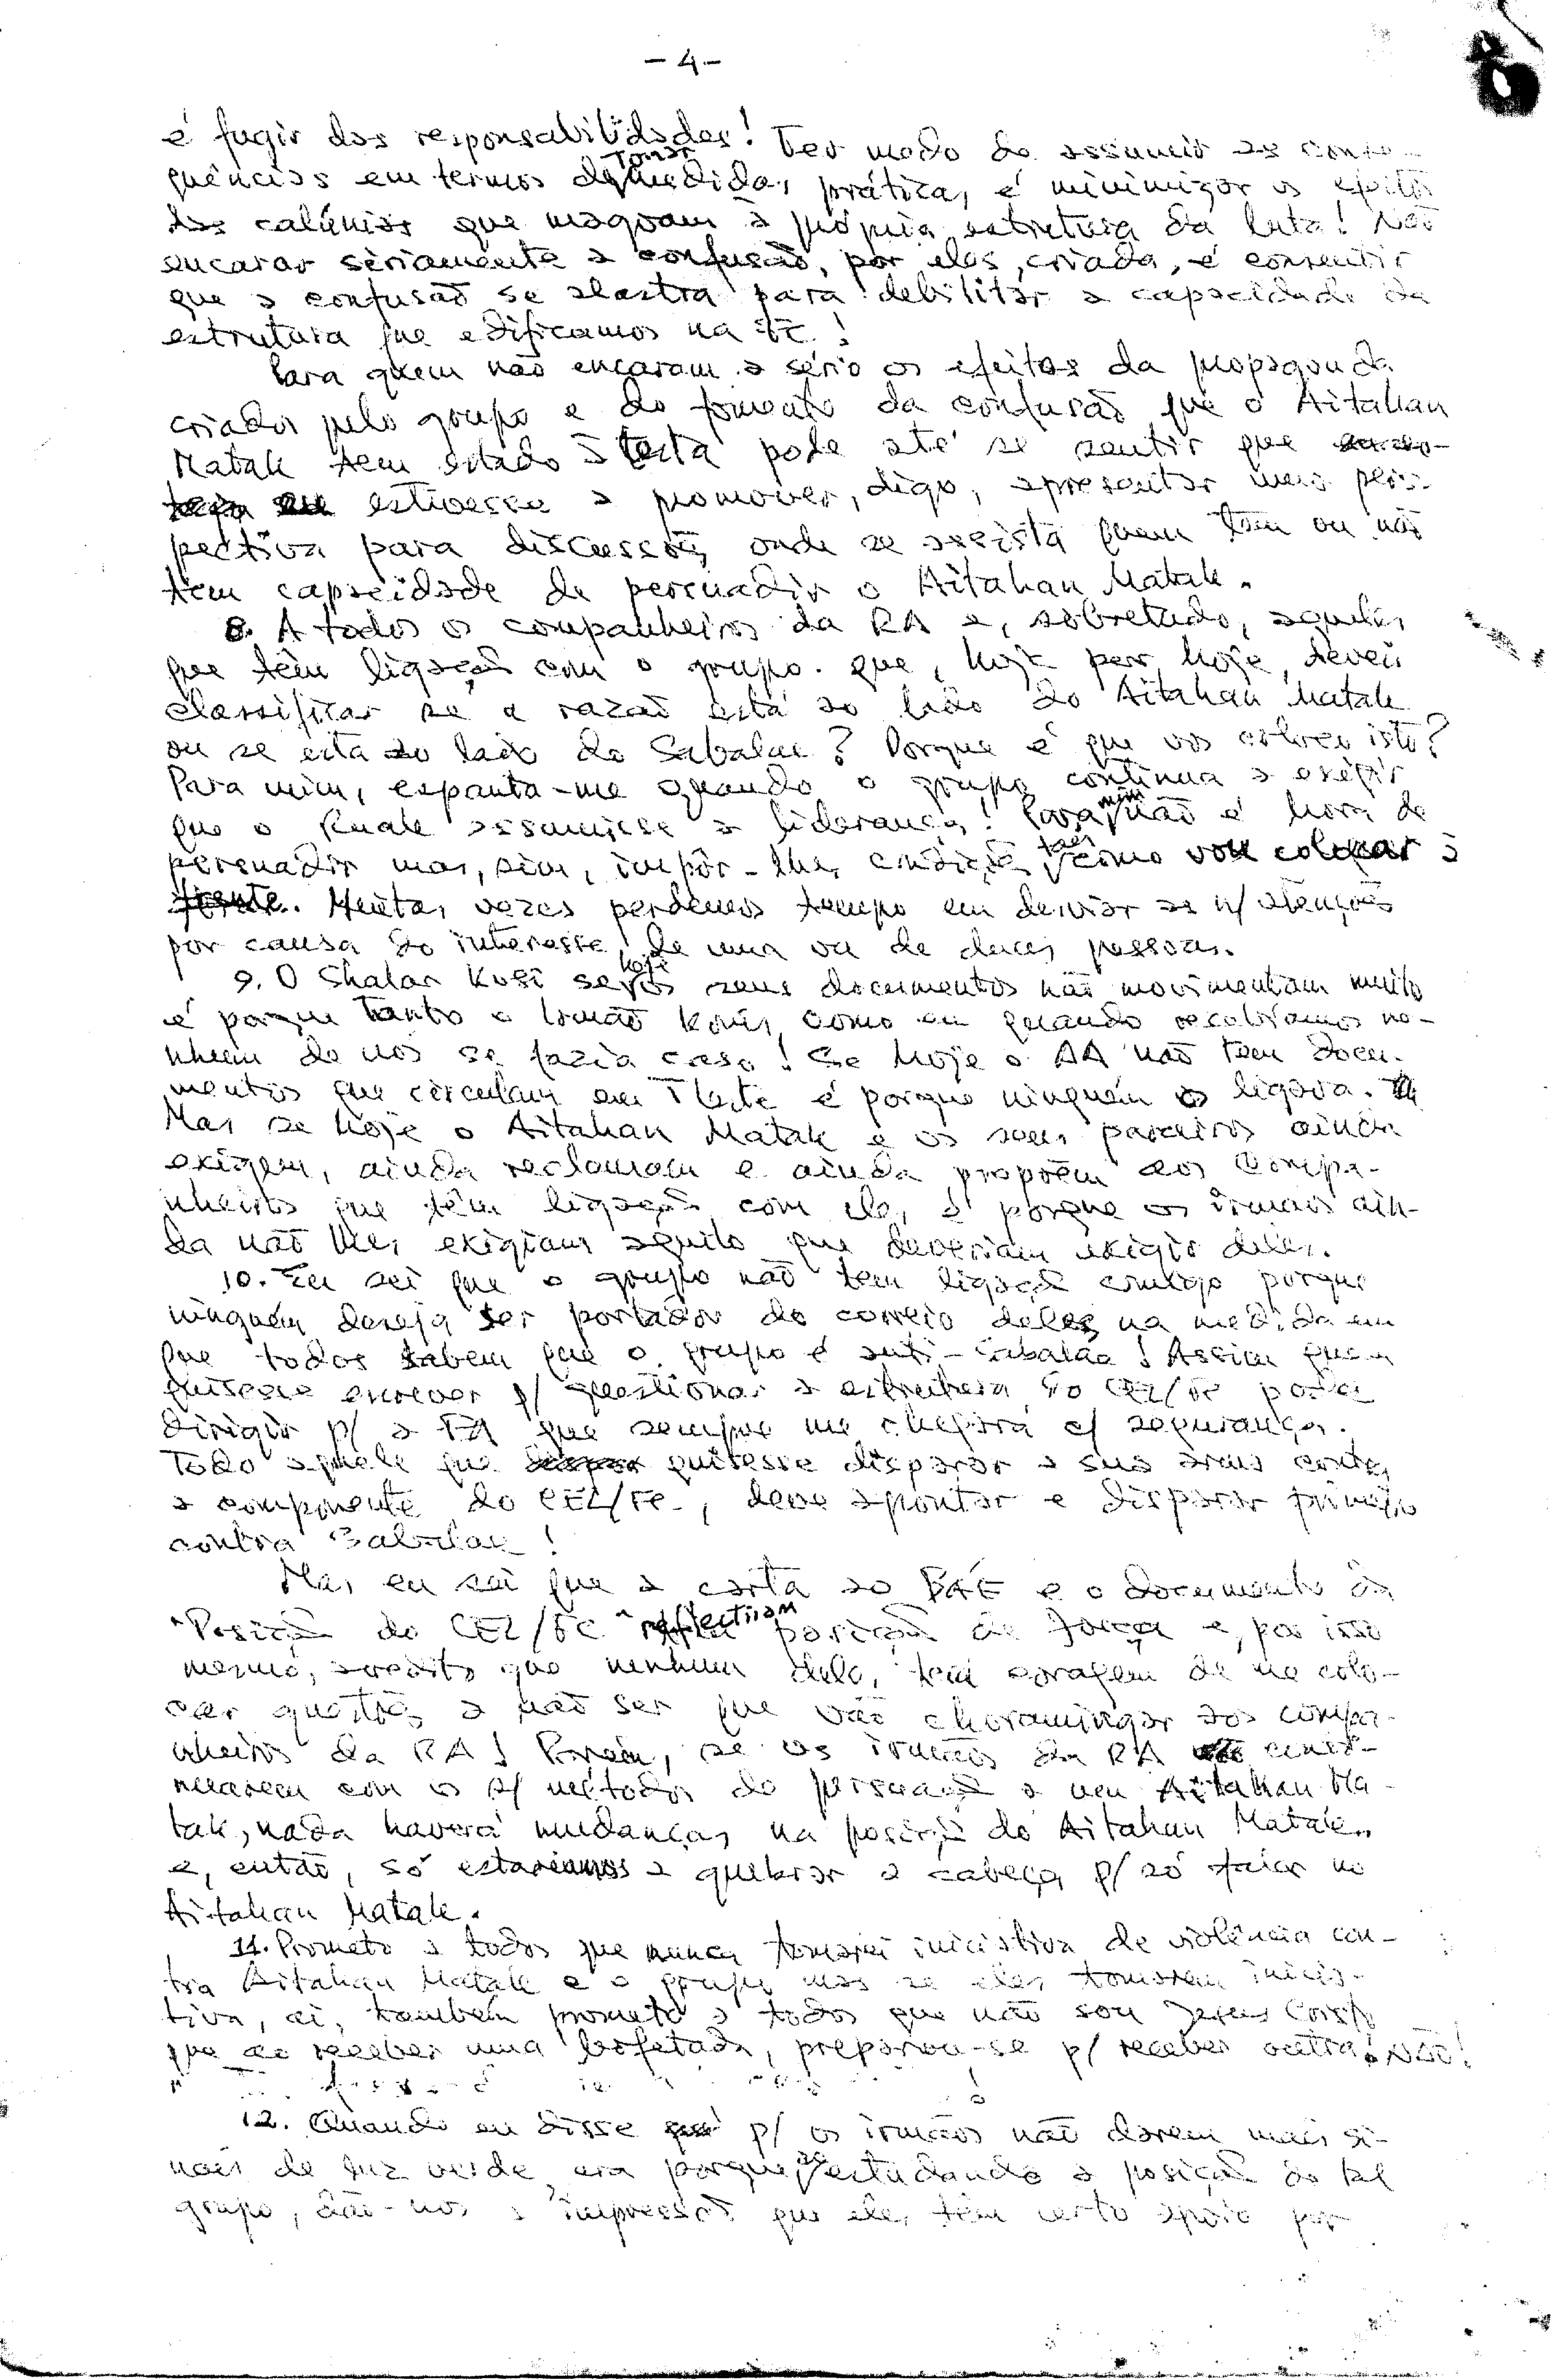 - 4 -
é fugir das responsabilidades! Ter medo de assumir as conse-
quências em termos de tomar medidas prática, é minimizar os efeitos
das calúnias que magoam a própria estrutura da luta! Não
encarar sèriamente a confusão, por eles, criada, é consentir
que a confusão se alastra para debilitar a capacidade da
estrutura que edificamos na FC!
Para quem não encaram a sério os efeitos da propaganda
criada pelo grupo e do fomento da confusão que o Aitahan
Matak tem estado à testa pode até se sentir que
estivesse a promover, digo, apresentar uma pers-
pectiva para discussões onde se assista quem tem ou não
tem capacidade de persuadir o Aitahan Matak.
8. A todos os companheiros da RA e, sobretudo, aqueles
que têm ligação com o grupo. que, hoje por hoje, devem
classificar se a razão está ao lado do Aitahan Matak
ou se está ao lado do Sabalae? Porque é que vos coloco isto?
Para mim, espanta-me quando o grupo continua a exigir
que o Ruak assumisse a liderança! Para mim não é hora de
persuadir mas, sim, impôr-lhes condições tais como vou colocar à
frente. Muitas vezes perdemos tempo em desviar as n/ atenções
por causa do interesse de uma ou de duas pessoas.
9. O Shalar Kosi se hoje os seus documentos não movimentam muito
é porque tanto o Irmão Konis como eu quando recebíamos ne-
nhum de nós se fazia caso! Se hoje o AA não tem docu-
mentos que circulam em T. Leste é porque ninguém os ligava.
Mas se hoje o Aitahan Matak e os seus parceiros ainda
exigem, ainda reclamam e ainda propõem aos compa-
nheiros que têm ligação com ele, é porque os irmãos ain-
da não lhes exigiam aquilo que deveriam exigir deles.
10. Eu sei que o grupo não tem ligação comigo porque
ninguém deseja ser portador do correio deles na medida em
que todos sabem que o grupo é anti-Sabalae! Assim quem
quisesse escrever p/ questionar a estrutura do CEL/FC pode
dirigir p/ a que sempre me chegará c/ segurança.
Todo aquele que quisesse disparar a sua arma contra
a componente do CEL/FC, deve apontar e disparar primeiro
contra Sabalae!
Mas eu sei que a carta ao e o documento da
"Posição do CEL/FC" reflectiram posição de força e, por isso
mesmo, acredito que nenhum deles, tem coragem de me colo-
car questões a não ser que vão choramingar aos compa-
nheiros da RA! Porém, se os irmãos da RA
com os s/ métodos de persuasão a um Aitahan Ma-
tak, nada haverá mudanças na posição do Aitahan Matak
e, então, só estaríamos a quebrar a cabeça p/ só falar no
Aitahan Matak.
11. Prometo a todos que nunca tomarei iniciativa de violência con-
tra Aitahan Matak e o grupo mas se eles tomarem inicia-
tiva, aí, também prometo a todos que não sou Jesus Cristo
que ao receber uma bofetada, preparou-se p/ receber outra! Não!
12. Quando eu disse p/ os irmãos não darem mais si-
nais de luz verde era porque ao estudando a posição do tal
grupo, dão-nos a impressão que eles têm certo apoio por